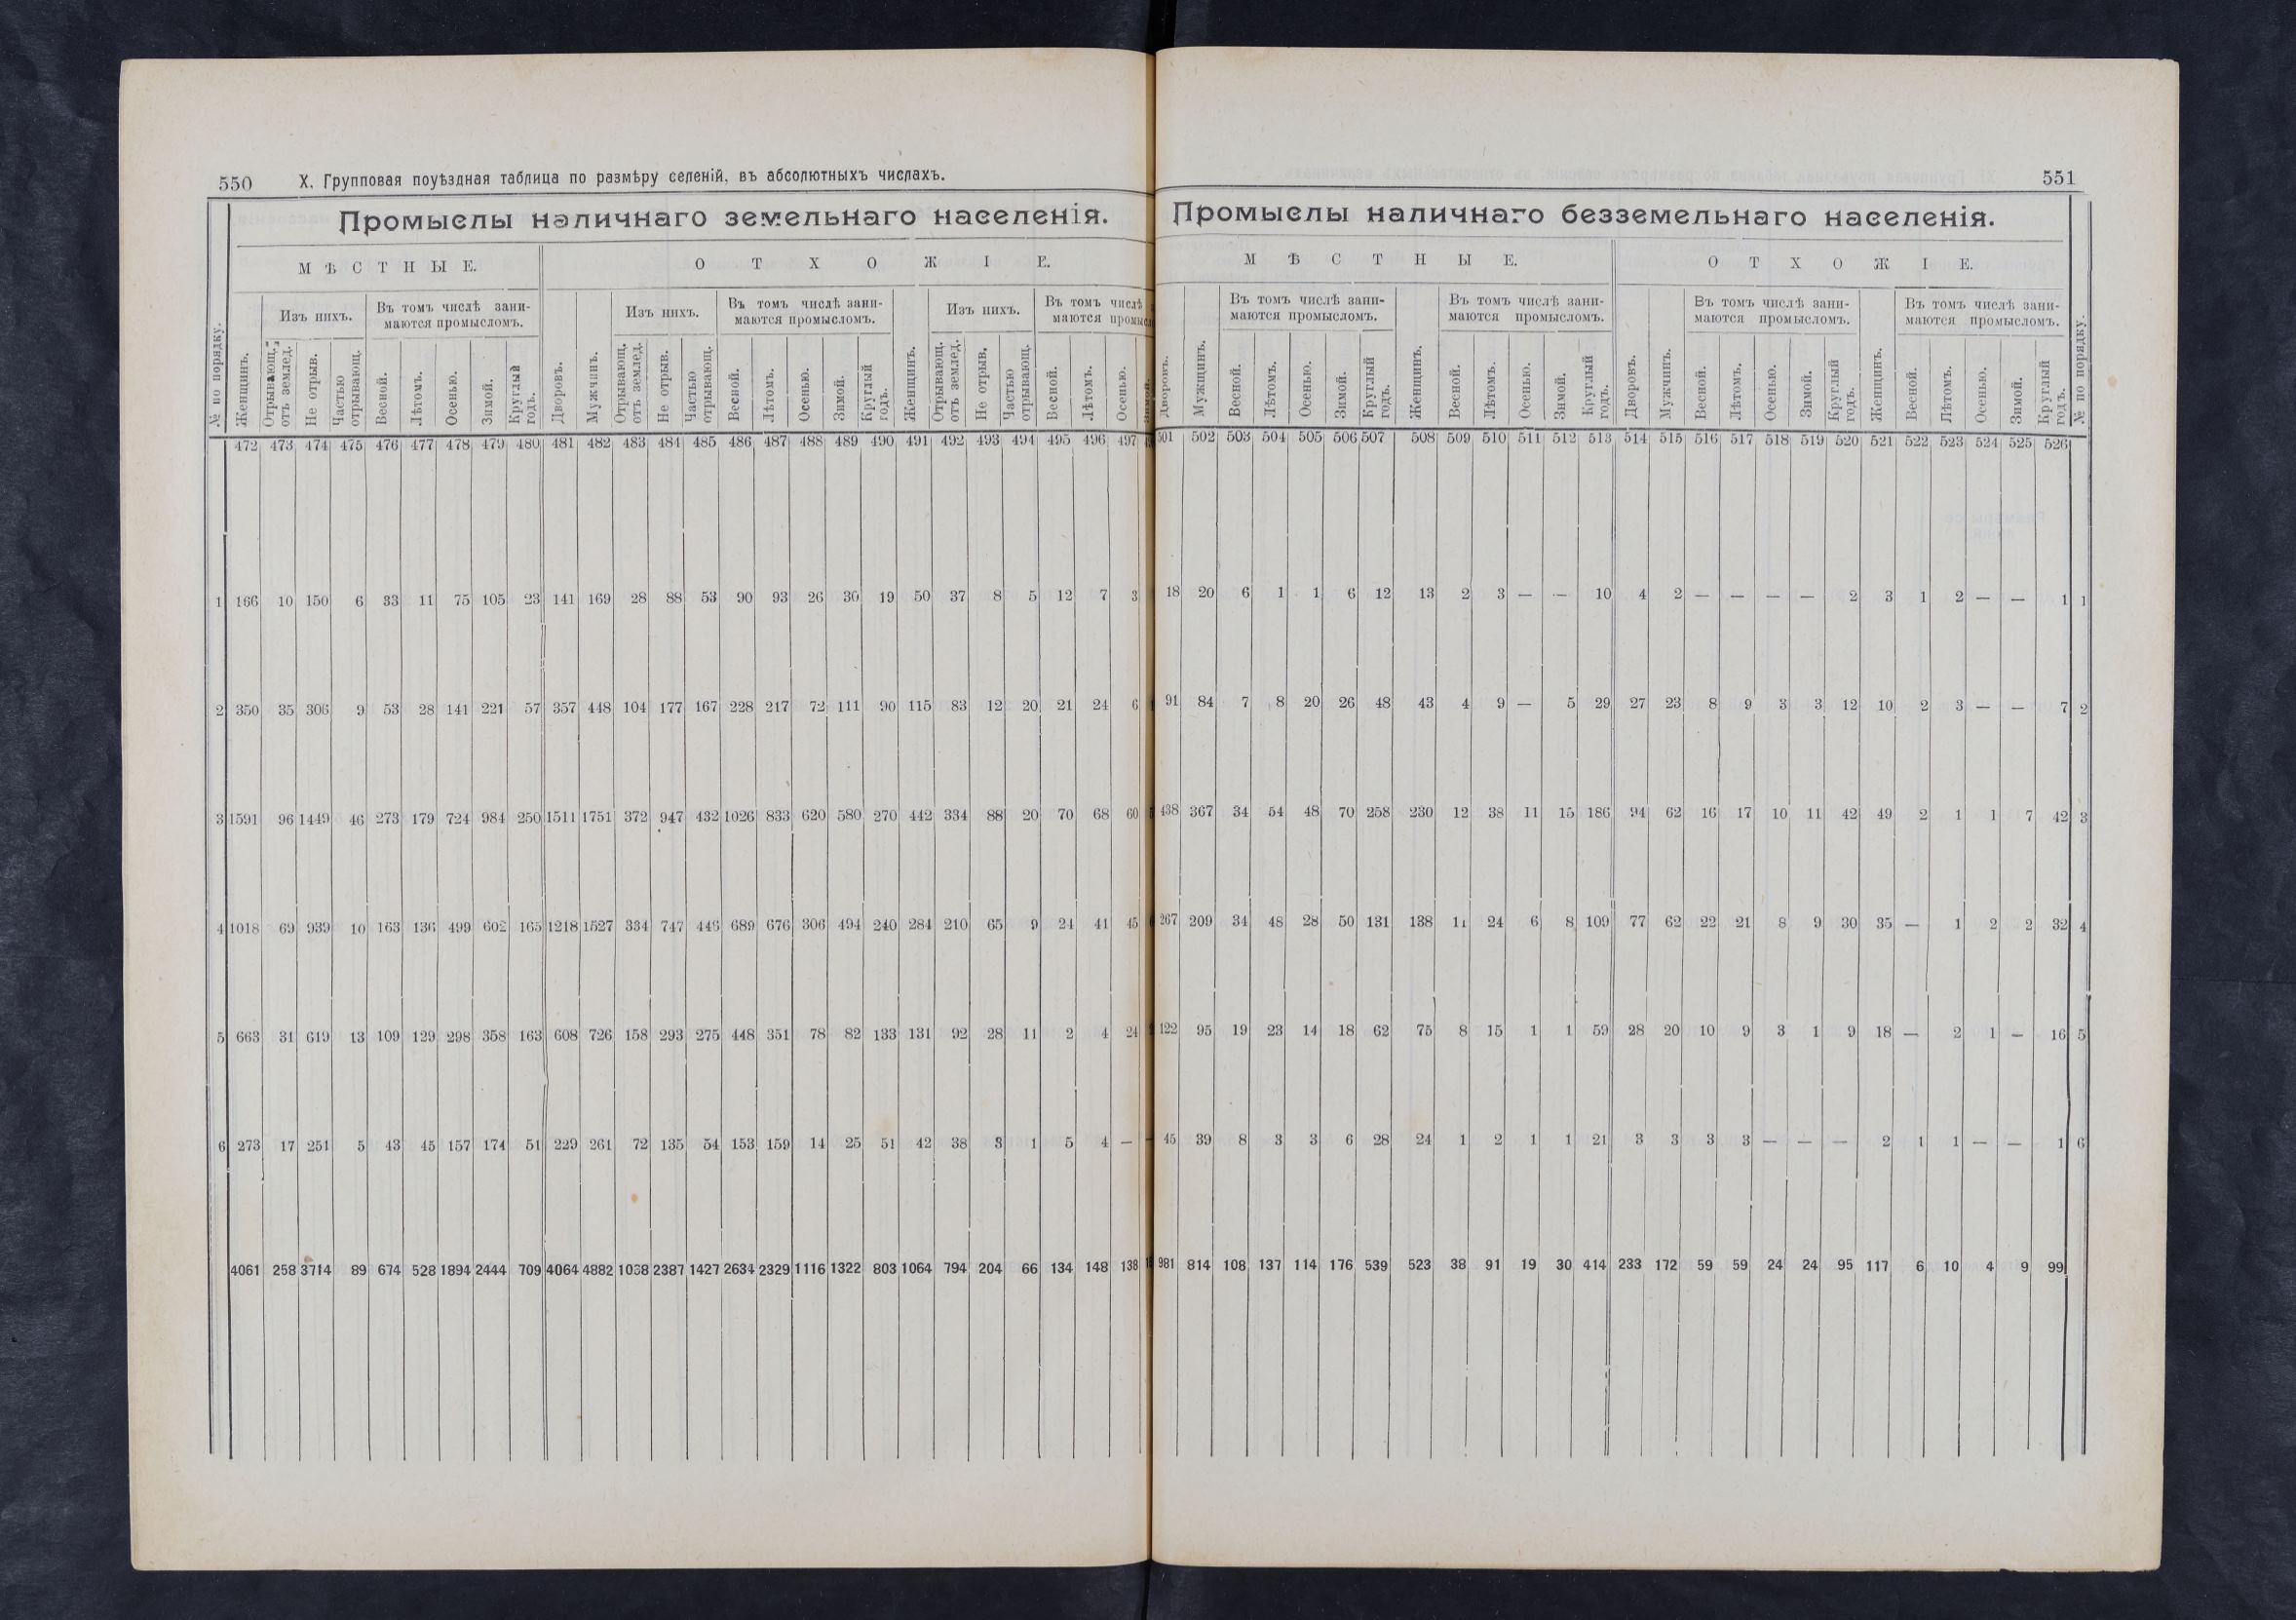 550 X. Групповая поуѣздная таблица по размѣру селеній, въ абсолютныхъ числахъ.
Промыслы наличнаго земельнаго населенія.
МѢСТНЫЕ. ОТХОЖІЕ.
№ по порядку. Женщинъ. Изъ нихъ. Въ томъ числѣ занимаются промысломъ. Дворовъ. Мужчинъ. Изъ нихъ. Въ томъ числѣ занимаются промысломъ. Женщинъ. Изъ нихъ. Въ томъ числѣ
Отрывающ. отъ землед. Не отрыв. Частью отрывающ. Весной. Лѣтомъ. Осенью. Зимой. Круглый годъ. Отрывающ. отъ землед. Не отрыв. Частью отрывающ. Весной. Лѣтомъ. Осенью. Зимой. Круглый годъ. Отрывающ. отъ землед. Не отрыв. Частью отрывающ. Весной. Лѣтомъ. Осенью.
472 473 474 475 476 477 478 479 480 481 482 483 484 485 486 487 488 489 490 491 492 493 494 495 496 497
1 166 10 150 6 33 11 75 105 23 141 169 28 88 53 90 93 26 30 19 50 37 8 5 12 7 3
2 350 35 306 9 53 28 141 221 57 357 448 104 177 167 228 217 72 111 90 115 83 12 20 21 24 6
3 1591 96 1449 46 273 179 724 984 250 1511 1751 372 947 432 1026 833 620 580 270 442 334 88 20 70 68 60
4 1018 69 939 10 163 136 499 602 165 1218 1527 334 747 446 689 676 306 494 240 284 210 65 9 24 41 45
5 663 31 619 13 109 129 298 358 163 608 726 158 293 275 448 351 78 82 133 131 92 28 11 2 4 24
6 273 17 251 5 43 45 157 174 51 229 261 72 135 54 153 159 14 25 51 42 38 3 1 5 4 —
4061 258 3714 89 674 528 1894 2444 709 4064 4882 1068 2387 1427 2634 2329 1116 1322 803 1064 794 204 66 134 148 138
551
Промыслы наличнаго безземельнаго населенія.
МѢСТНЫЕ. ОТХОЖІЕ.
Дворовъ. Мужщинъ. Въ томъ числѣ занимаются промысломъ. Женщинъ. Въ томъ числѣ занимаются промысломъ. Дворовъ. Мужчинъ. Въ томъ числѣ занимаются промысломъ. Женщинъ. Въ томъ числѣ занимаются промысломъ. № по порядку.
Весной. Лѣтомъ. Осенью. Зимой. Круглый годъ. Весной. Лѣтомъ. Осенью. Зимой. Круглый годъ. Весной. Лѣтомъ. Осенью. Зимой. Круглый годъ. Весной. Лѣтомъ. Осенью. Зимой. Круглый годъ.
501 502 503 504 505 506 507 508 509 510 511 512 513 514 515 516 517 518 519 520 521 522 523 524 525 526
18 20 6 1 1 6 12 13 2 3 — — 10 4 2 — — — — 2 3 1 2 — — 1 1
91 84 7 8 20 26 48 43 4 9 — 5 29 27 23 8 9 3 3 12 10 2 3 — — 7 2
438 367 34 54 48 70 258 230 12 38 11 15 186 94 62 16 17 10 11 42 49 2 1 1 7 42 3
267 209 34 48 28 50 131 138 11 24 6 8 109 77 62 22 21 8 9 30 35 — 1 2 2 32 4
122 95 19 23 14 18 62 75 8 15 1 1 59 28 20 10 9 3 1 9 18 — 2 1 — 16 5
45 39 8 3 3 6 28 24 1 2 1 1 21 3 3 3 3 — — — 2 1 1 — — 1 6
981 814 108 137 114 176 539 523 38 91 19 30 414 233 172 59 59 24 24 95 117 6 10 4 9 99